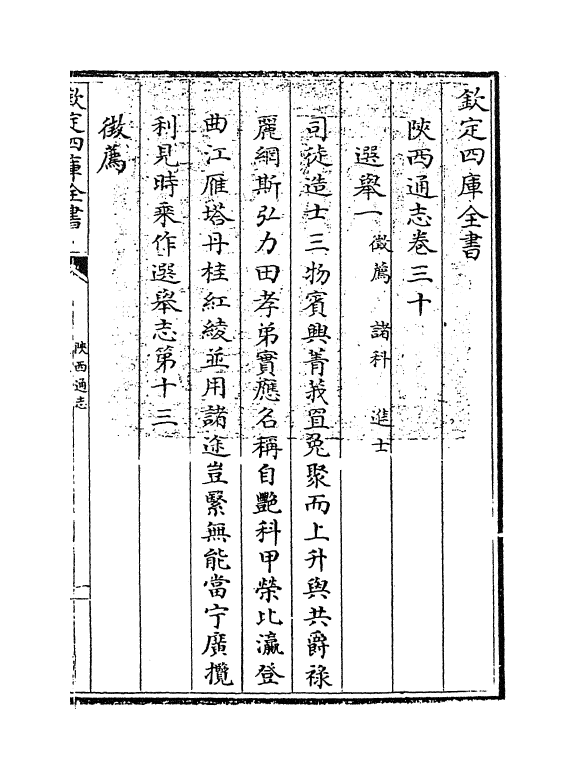 欽定四庫全書
陜西通志卷三十
選舉一 徵薦 諸科 進士
司徒造士三物賓興菁莪罝兔聚而上升與共爵祿
麗網斯弘力田孝弟實應名稱自艷科甲榮比瀛登
曲江雁塔丹桂紅綾並用諸途豈繄無能當宁廣攬
利見時乘作選舉志第十三
徵薦
欽定四庫全書
陜西通志
一